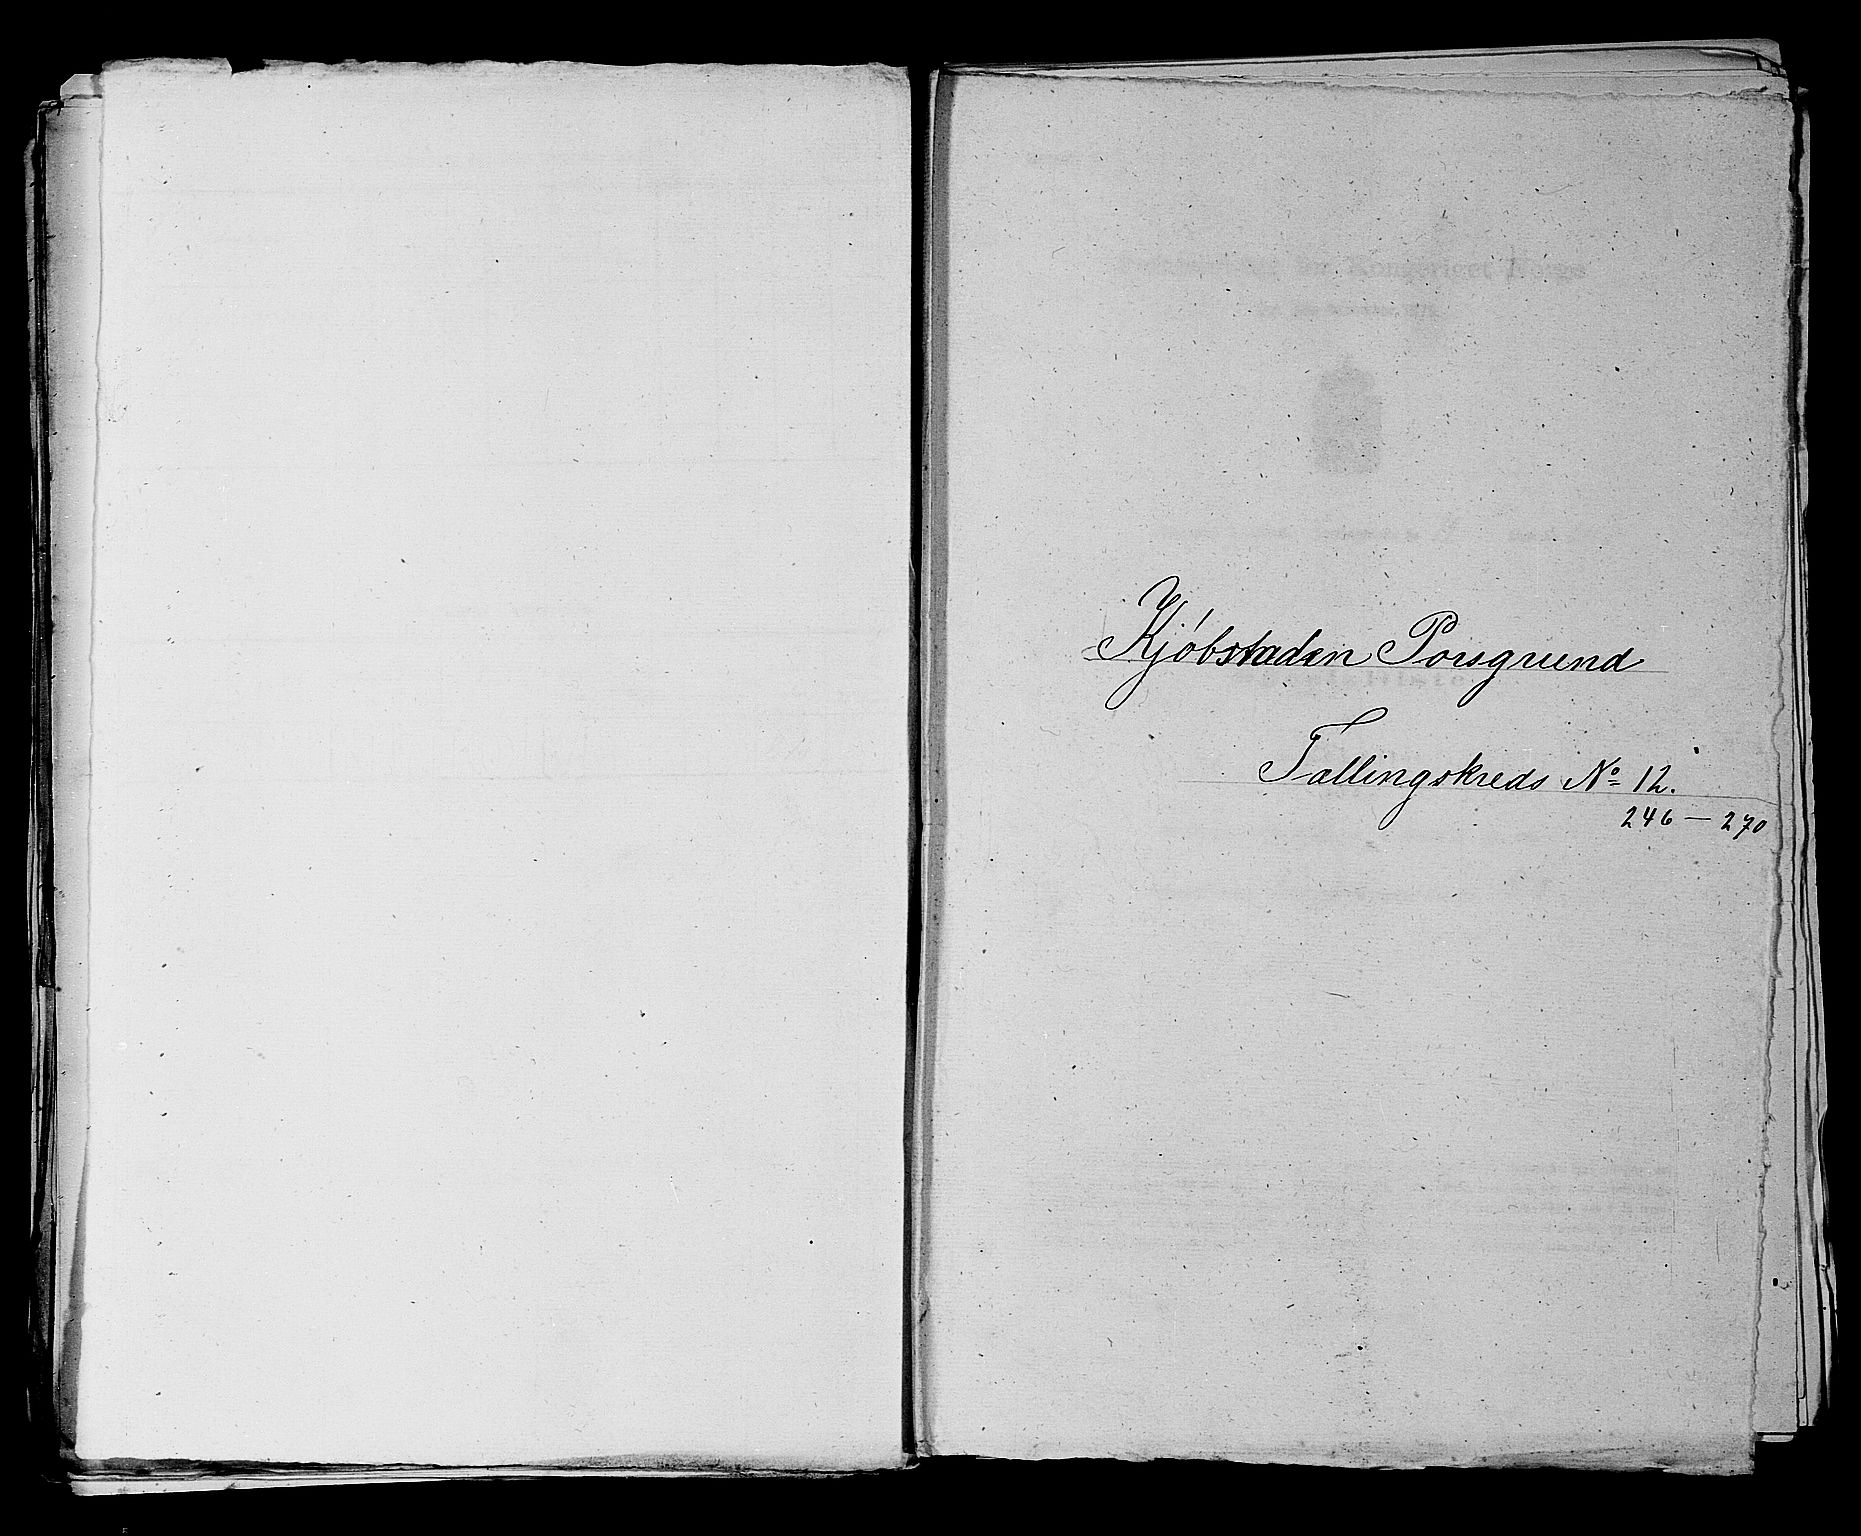 Kjøbstaden Porsgrund
Tællingskreds No 12.
246 — 270